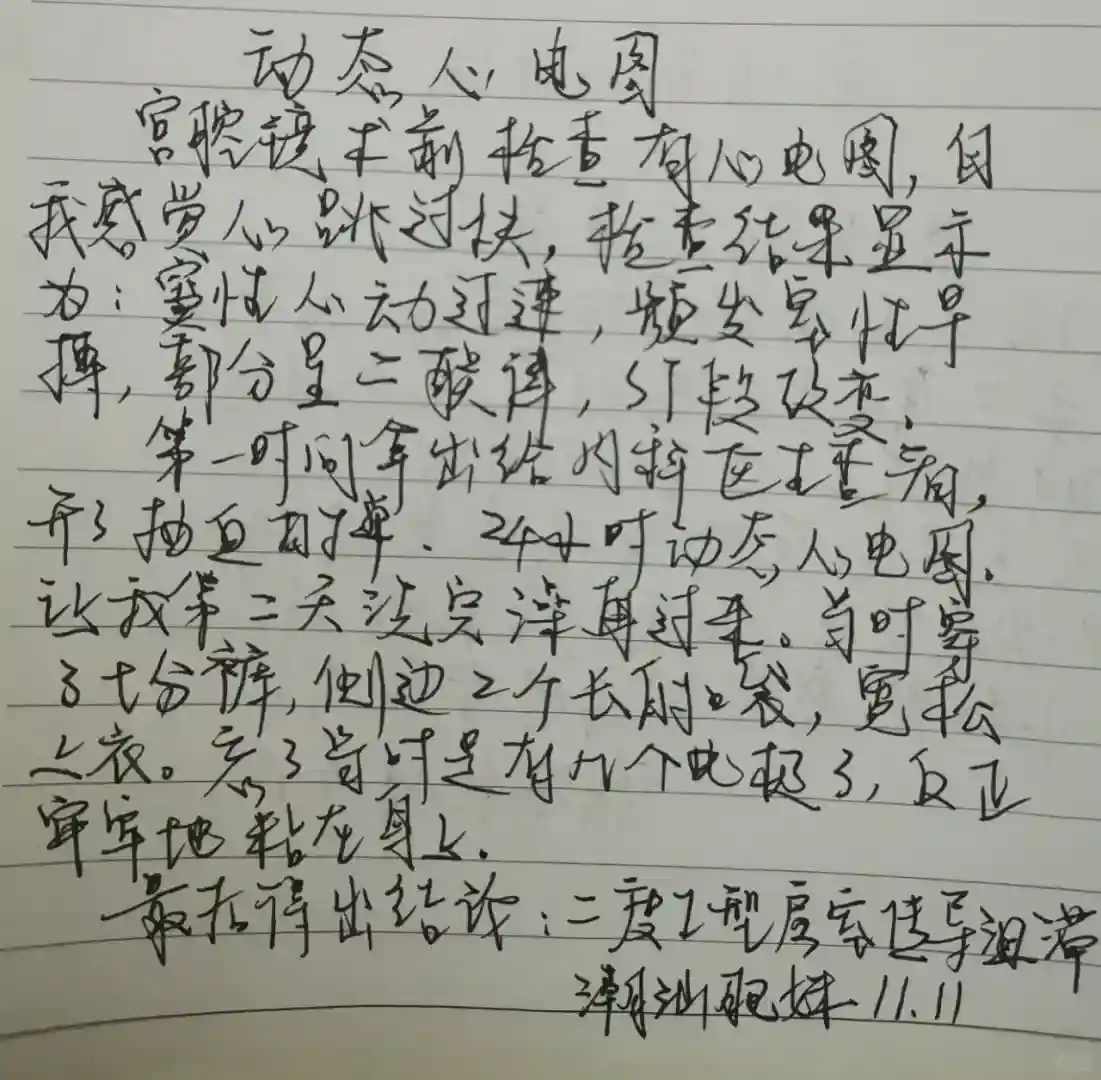 动态心电图
宫腔镜术前检查有心电图,自
我感觉心跳过快,检查结果显示
为:窦性心动过速,频发室性早
搏,部分呈二联律,ST段改变.
第一时间拿出给内科医生查看,
开了抽血 24小时动态心电图.
让我第二天洗完澡再过来。当时穿
了七分裤,侧边2个长的口袋,宽松
上衣。忘了当时是有几个电极了,反正
牢牢地粘在身上.
最后得出结论:二度I型房室传导阻滞
潮汕肥妹 11.11